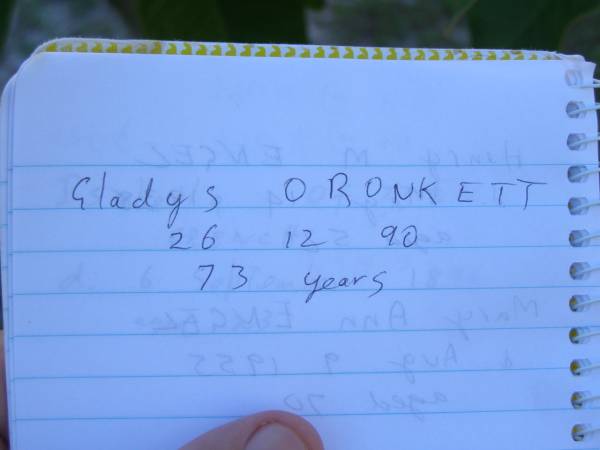 Gladys ORONKETT
26 12 90
73 years